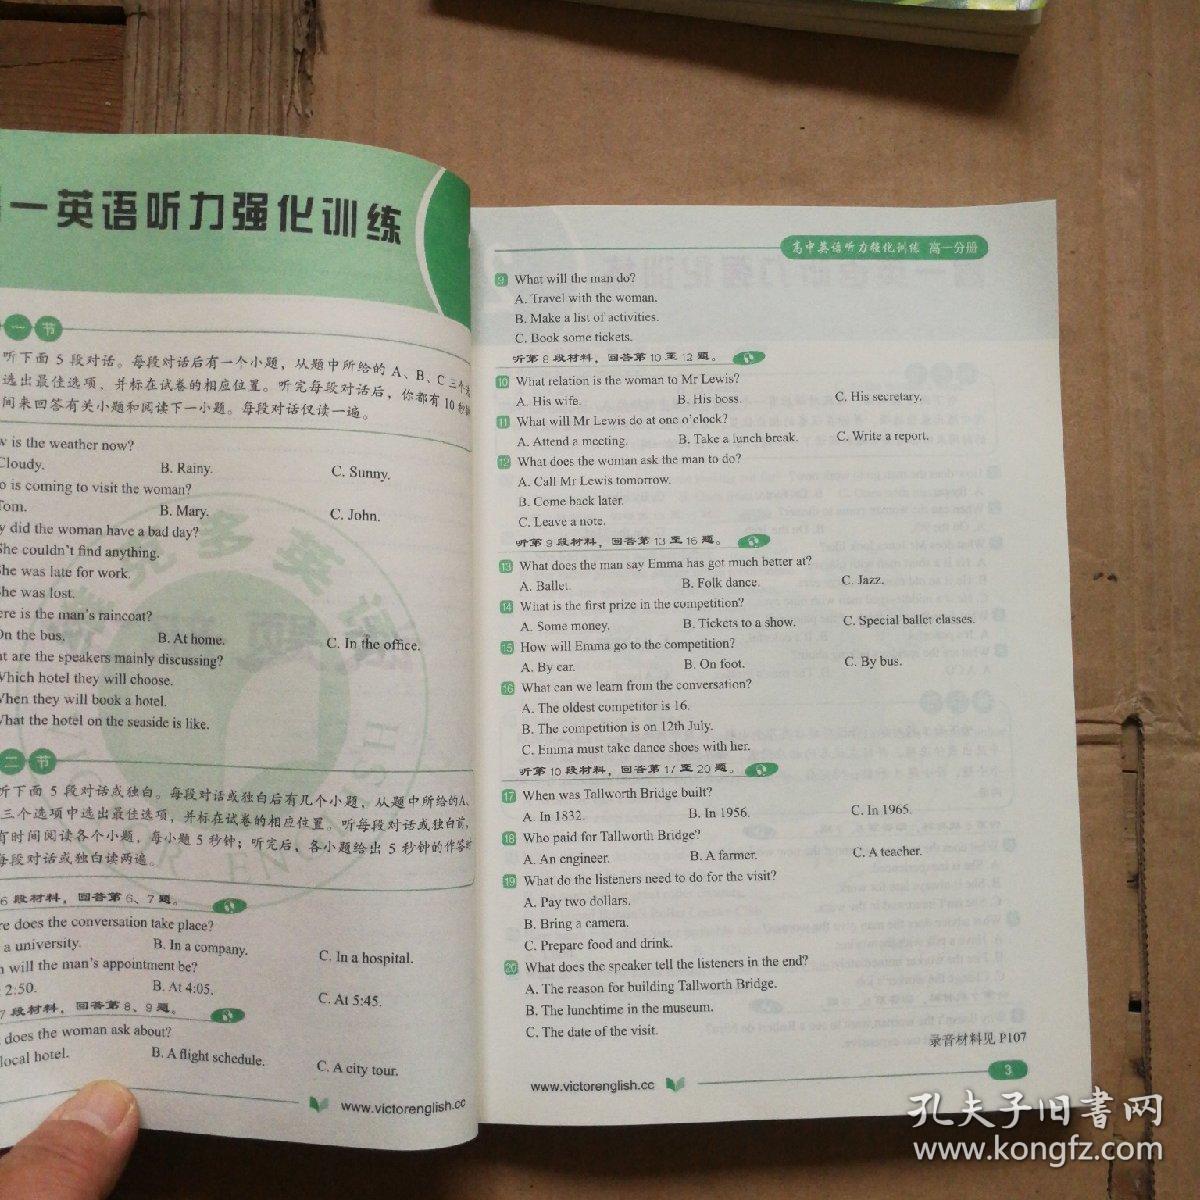 一英语听力强化训练
一节
听下面 5 段对话。每段对话后有一个小题，从题中所给的 A、B、C 三个
选出最佳选项，并标在试卷的相应位置。听完每段对话后，你都有 10 秒
间来回答有关小题和阅读下一小题。每段对话仅读一遍。
is the weather now?
Cloudy. B. Rainy. C. Sunny.
is coming to visit the woman?
Tom. B. Mary. C. John.
did the woman have a bad day?
She couldn't find anything.
She was late for work.
She was lost.
is the man's raincoat?
On the bus. B. At home. C. In the office.
are the speakers mainly discussing?
Which hotel they will choose.
When they will book a hotel.
What the hotel on the seaside is like.
二节
听下面 5 段对话或独白。每段对话或独白后有几个小题，从题中所给的A、
三个选项中选出最佳选项，并标在试卷的相应位置。听每段对话或独白前，
有时间阅读各个小题，每小题 5 秒钟；听完后，各小题给出 5 秒钟的作答时
每段对话或独白读两遍。
6 段材料，回答第 6、7 题。
does the conversation take place?
a university. B. In a company. C. In a hospital.
will the man's appointment be?
2:50. B. At 4:05. C. At 5:45.
7 段材料，回答第 8、9 题。
does the woman ask about?
local hotel. B. A flight schedule. C. A city tour.
www.victorenglish.cc
高中英语听力强化训练 高一分册
9 What will the man do?
A. Travel with the woman.
B. Make a list of activities.
C. Book some tickets.
听第 8 段材料，回答第 10 至 12 题。
10 What relation is the woman to Mr Lewis?
A. His wife. B. His boss. C. His secretary.
11 What will Mr Lewis do at one o'clock?
A. Attend a meeting. B. Take a lunch break. C. Write a report.
12 What does the woman ask the man to do?
A. Call Mr Lewis tomorrow.
B. Come back later.
C. Leave a note.
听第 9 段材料，回答第 13 至 16 题。
13 What does the man say Emma has got much better at?
A. Ballet. B. Folk dance. C. Jazz.
14 What is the first prize in the competition?
A. Some money. B. Tickets to a show. C. Special ballet classes.
15 How will Emma go to the competition?
A. By car. B. On foot. C. By bus.
16 What can we learn from the conversation?
A. The oldest competitor is 16.
B. The competition is on 12th July.
C. Emma must take dance shoes with her.
听第 10 段材料，回答第 17 至 20 题。
17 When was Tallworth Bridge built?
A. In 1832. B. In 1956. C. In 1965.
18 Who paid for Tallworth Bridge?
A. An engineer. B. A farmer. C. A teacher.
19 What do the listeners need to do for the visit?
A. Pay two dollars.
B. Bring a camera.
C. Prepare food and drink.
20 What does the speaker tell the listeners in the end?
A. The reason for building Tallworth Bridge.
B. The lunchtime in the museum.
C. The date of the visit.
录音材料见 P107
www.victorenglish.cc
3
孔夫子旧书网
www.kongfz.com